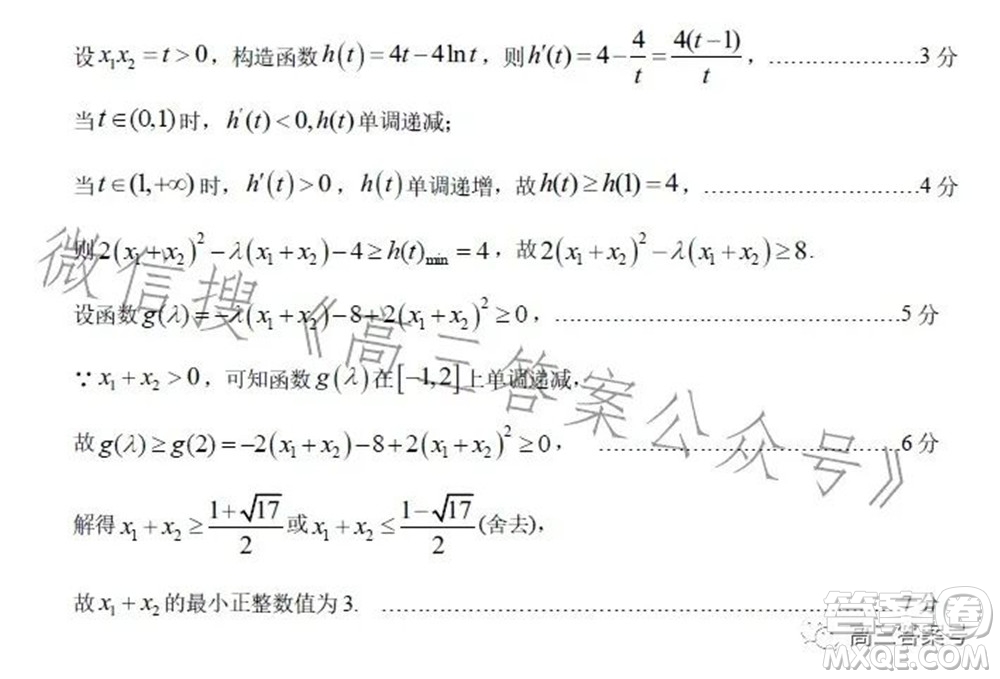 设 x₁x₂ = t > 0，构造函数 h(t) = 4t − 4ln t，则 h′(t) = 4 − 4/t = 4(t−1)/t，……………………3 分
当 t∈(0,1) 时，h′(t) < 0, h(t) 单调递减；
当 t∈(1,+∞) 时，h′(t) > 0，h(t) 单调递增，故 h(t) ≥ h(1) = 4，……………………4 分
则 2(x₁+x₂)² − λ(x₁+x₂) − 4 ≥ h(t)min = 4，故 2(x₁+x₂)² − λ(x₁+x₂) ≥ 8.
设函数 g(λ) = −λ(x₁+x₂) − 8 + 2(x₁+x₂)² ≥ 0，……………………5 分
∵ x₁+x₂ > 0，可知函数 g(λ) 在 [−1,2] 上单调递减，
故 g(λ) ≥ g(2) = −2(x₁+x₂) − 8 + 2(x₁+x₂)² ≥ 0，……………………6 分
解得 x₁+x₂ ≥ (1+√17)/2 或 x₁+x₂ ≤ (1−√17)/2 (舍去)，
故 x₁+x₂ 的最小正整数值为 3. ……………………7 分
微信搜《高三答案公众号》
答案圈
高三答案号
MXQE.COM